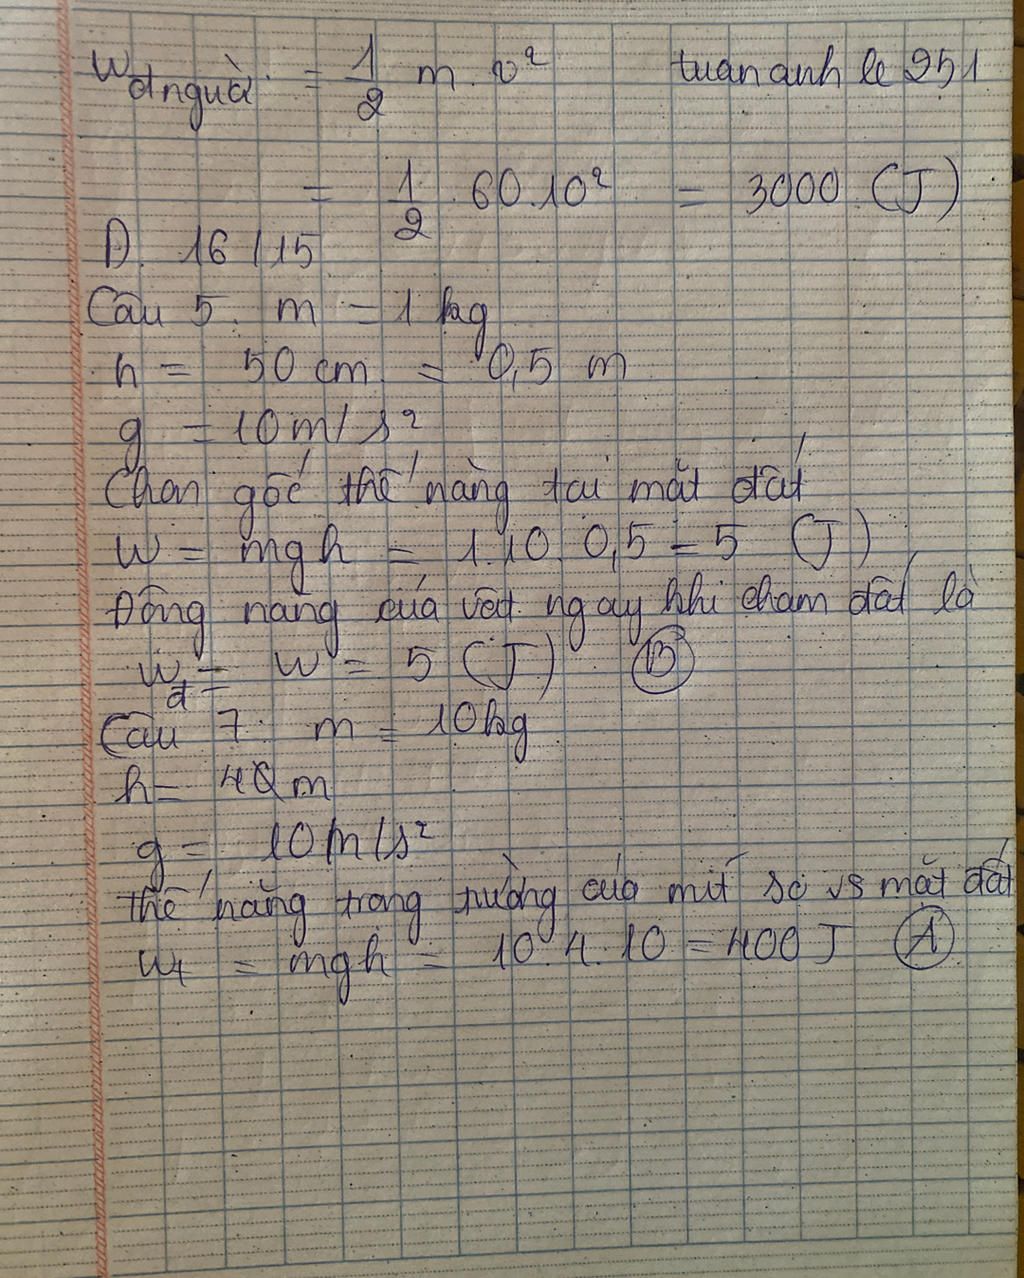 Wđnguời = 1/2 m. v² tuananh le 251
= 1/2 . 60.10² = 3000 (J)
D. 16 / 15
Câu 5. m = 1 kg
h = 50 cm = 0,5 m
g = 10 m/s²
Chọn gốc thế năng tại mặt đất
W = mgh = 1.10.0,5 = 5 (J)
Động năng của vật ngay khi chạm đất là
Wđ = W = 5 (J) B
Câu 7: m = 10kg
h = 4 m
g = 10 m/s²
thế năng trọng trường của mít so vs mặt đất
Wt = mgh = 10.4.10 = 400 J A